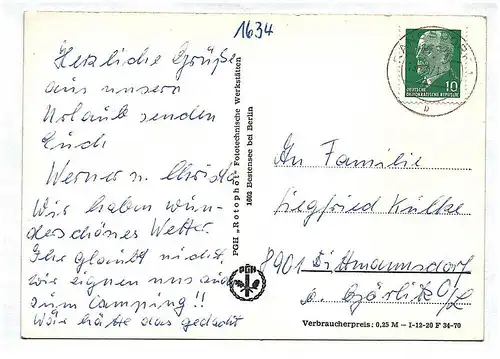 1634
Herzliche Grüße
aus unserm
Urlaub senden
Euch
Werner u. Christa
Wir haben wun-
derschönes Wetter.
Ihr glaubt nicht,
wir eignen uns auch
zum Camping!!
Wär hätte das gedacht
PGH „Rotophot“ Fototechnische Werkstätten
1602 Bestensee bei Berlin
PGH
10
DEUTSCHE
DEMOKRATISCHE REPUBLIK
An Familie
Siegfried Külke
8901 Dittmannsdorf
b. Görlitz O/L
Verbraucherpreis: 0,25 M – I-12-20 F 36-70